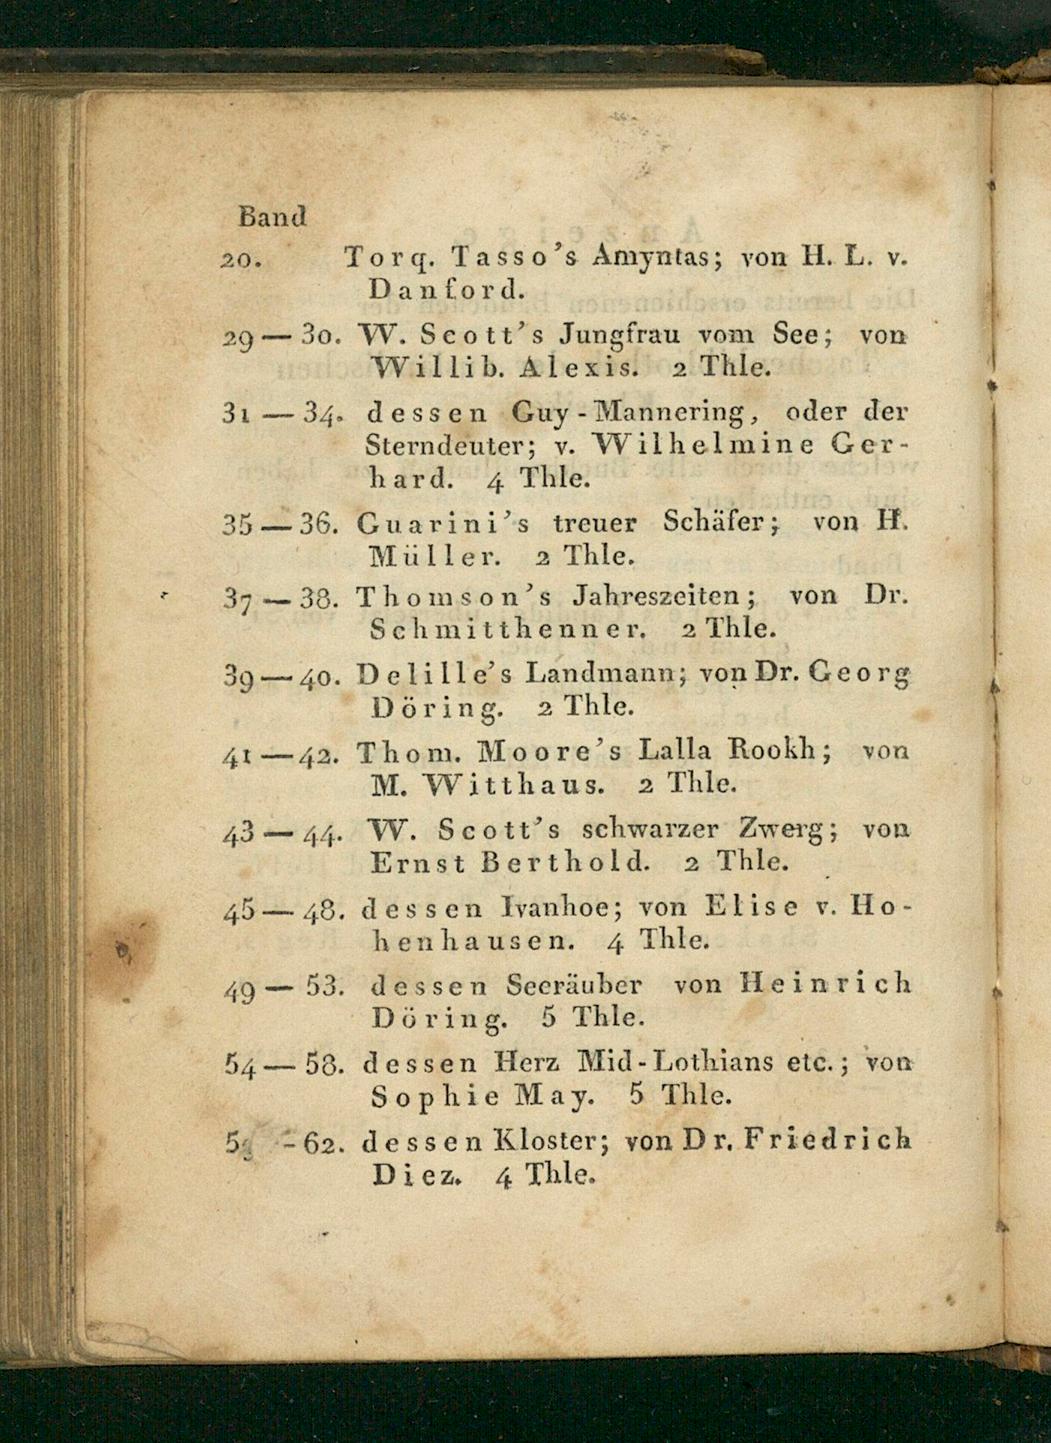 Band
20. Torq. Tasso's Amyntas; von H. L. v.
Danford.
29 — 30. W. Scott's Jungfrau vom See; von
Willib. Alexis. 2 Thle.
31 — 34. dessen Guy-Mannering, oder der
Sterndeuter; v. Wilhelmine Ger-
hard. 4 Thle.
35 — 36. Guarini's treuer Schäfer; von H.
Müller. 2 Thle.
37 — 38. Thomson's Jahreszeiten; von Dr.
Schmitthenner. 2 Thle.
39 — 40. Delille's Landmann; von Dr. Georg
Döring. 2 Thle.
41 — 42. Thom. Moore's Lalla Rookh; von
M. Witthaus. 2 Thle.
43 — 44. W. Scott's schwarzer Zwerg; von
Ernst Berthold. 2 Thle.
45 — 48. dessen Ivanhoe; von Elise v. Ho-
henhausen. 4 Thle.
49 — 53. dessen Seeräuber von Heinrich
Döring. 5 Thle.
54 — 58. dessen Herz Mid-Lothians etc.; von
Sophie May. 5 Thle.
59 - 62. dessen Kloster; von Dr. Friedrich
Diez. 4 Thle.